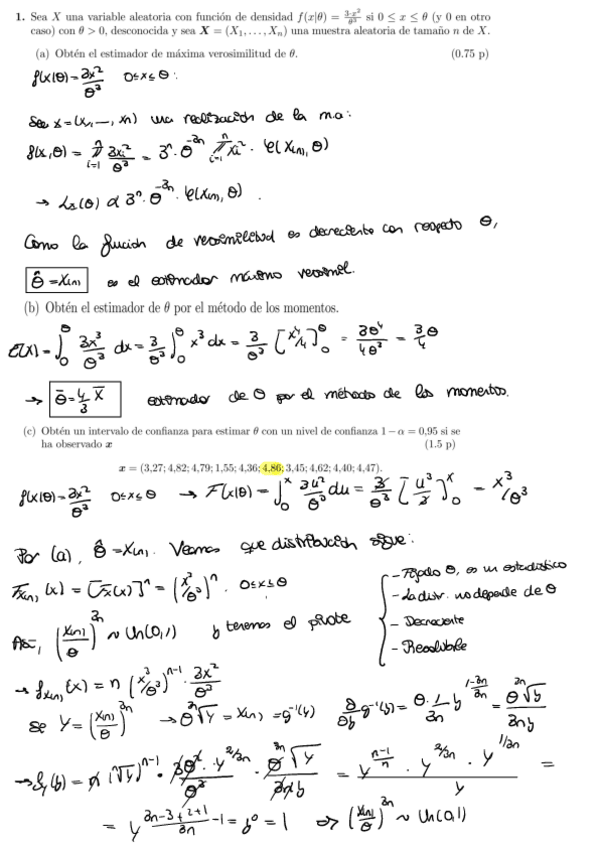 1. Sea X una variable aleatoria con función de densidad f(x|θ) = 3·x²/θ³ si 0 ≤ x ≤ θ (y 0 en otro
caso) con θ > 0, desconocida y sea X = (X₁, . . . , Xₙ) una muestra aleatoria de tamaño n de X.
(a) Obtén el estimador de máxima verosimilitud de θ. (0.75 p)
f(x|θ) = 3x²/θ³ 0≤x≤θ.
Sea x = (x₁, —, xₙ) una realización de la m.a:
f(x, θ) = ∏ᵢ₌₁ⁿ 3xᵢ²/θ³ = 3ⁿ · θ⁻³ⁿ ∏ᵢ₌₁ⁿ xᵢ² · φ(x₍ₙ₎, θ)
→ Lₓ(θ) ∝ 3ⁿ · θ⁻³ⁿ · φ(x₍ₙ₎, θ).
Como la función de verosimilitud es decreciente con respecto θ,
θ̂ = X₍ₙ₎ es el estimador máximo verosímil.
(b) Obtén el estimador de θ por el método de los momentos.
E(X) = ∫₀^θ 3x³/θ³ dx = 3/θ³ ∫₀^θ x³ dx = 3/θ³ [x⁴/4]₀^θ = 3θ⁴/4θ³ = 3/4 θ
→ θ̄ = 4/3 X̄ estimador de θ por el método de los momentos.
(c) Obtén un intervalo de confianza para estimar θ con un nivel de confianza 1 − α = 0,95 si se
ha observado x (1.5 p)
x = (3,27; 4,82; 4,79; 1,55; 4,36; 4.86; 3,45; 4,62; 4,40; 4,47).
f(x|θ) = 3x²/θ³ 0≤x≤θ → F(x|θ) = ∫₀ˣ 3u²/θ³ du = 3/θ³ [u³/3]₀ˣ = x³/θ³
Por (a), θ̂ = X₍ₙ₎. Veamos que distribución sigue:
F_X₍ₙ₎(x) = [Fₓ(x)]ⁿ = (x³/θ³)ⁿ. 0≤x≤θ
- Fijado θ, es un estadístico
- La distr. no depende de θ
- Decreciente
- Resoluble
Así, (X₍ₙ₎/θ)³ⁿ ~ Un(0,1) y tenemos el pivote
→ f_X₍ₙ₎(x) = n (x³/θ³)ⁿ⁻¹ · 3x²/θ³
se Y = (X₍ₙ₎/θ)³ⁿ → θ ³ⁿ√y = X₍ₙ₎ = g⁻¹(y) ∂/∂y g⁻¹(y) = θ · 1/3n y^((1-3n)/3n) = θ ³ⁿ√y / 3ny
→ f_Y(y) = n (ⁿ√y)ⁿ⁻¹ · 3θ² · y^(2/3n) / θ³ · θ ³ⁿ√y / 3ny = y^((n-1)/n) · y^(2/3n) · y^(1/3n) / y =
= y^((3n-3+2+1)/3n - 1) = y⁰ = 1 ⇒ (X₍ₙ₎/θ)³ⁿ ~ Un(0,1)